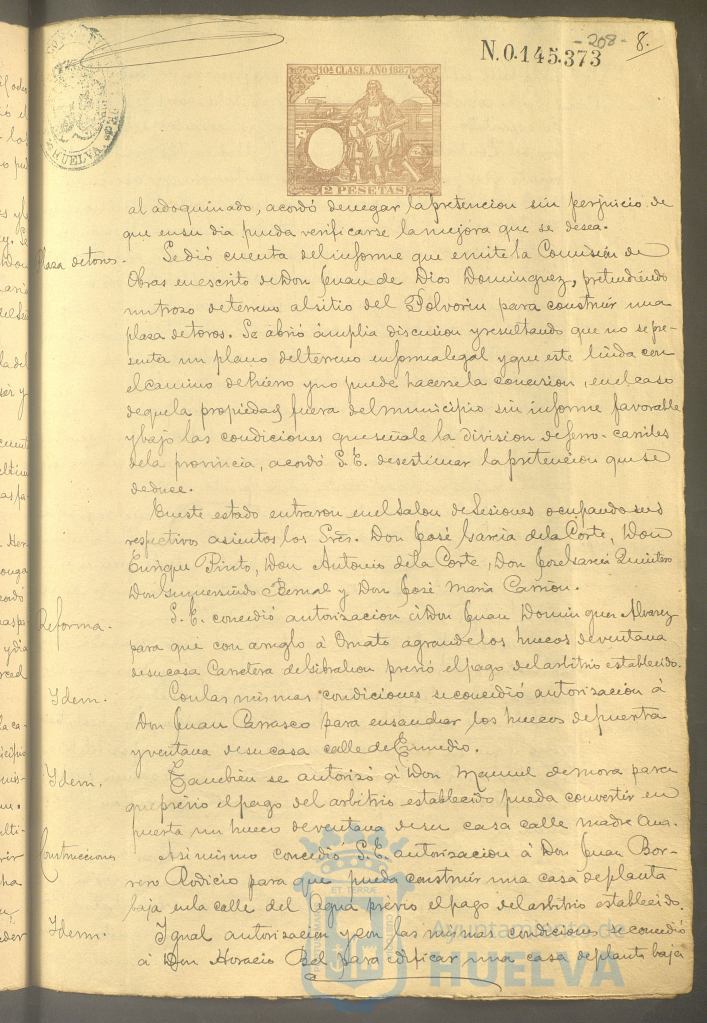 - 208 -
8.
N.0.145.373
HUELVA
10ª CLASE. AÑO 1887
2 PESETAS
al adoquinado, acordó denegar la pretencion sin perjuicio de
que en su dia pueda verificarse la mejora que se desea.
Plaza de toros. Se dió cuenta del informe que emite la Comision de
Obras en escrito de Don Juan de Dios Dominguez, pretendiendo
un trozo de terreno al sitio del Polvorin para construir una
plaza de toros. Se abrió ámplia discusion y resultando que no se pre-
senta un plano del terreno en forma legal y que este linda con
el camino de hierro y no puede hacerse la concesion, en el caso
de que la propiedad fuera del municipio sin informe favorable
y bajo las condiciones que señale la division de ferro-carriles
de la provincia, acordó S. E. desestimar la pretencion que se
deduce.
En este estado entraron en el Salon de Sesiones ocupando sus
respectivos asientos los Sres. Don José Garcia de la Corte, Don
Enrique Pinto, Don Antonio de la Corte, Don José Garcia Quintero
Don Gumersindo Bernal y Don José Maria Carrion.
Reforma. S. E. concedió autorizacion á Don Juan Dominguez Alvarez
para que con arreglo á Ornato agrande los huecos de ventana
de su casa Carretera de Gibraleon prévio el pago del arbitrio establecido.
Idem. Con las mismas condiciones se concedió autorizacion á
Don Juan Carrasco para ensanchar los huecos de puerta
y ventana de su casa calle de Enmedio.
Idem. Tambien se autorizó á Don Manuel de Mora para
que prévio el pago del arbitrio establecido pueda convertir en
puerta un hueco de ventana de su casa calle Madre Ana.
Construcciones Asi mismo concedió S. E. autorizacion á Don Juan Bor-
rero Rodicio para que pueda construir una casa de planta
baja en la calle del Agua prévio el pago del arbitrio establecido.
Idem. Igual autorizacion y con las mismas condiciones se concedió
á Don Horacio Bel para edificar una casa de planta baja
a
Ayuntamiento de
HUELVA
ET TERRÆ